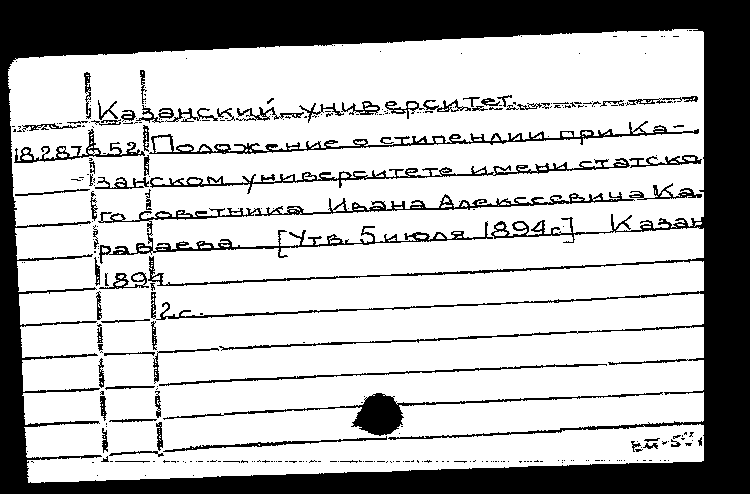 Казанский университет.
18.287.6.52. Положение о стипендии при Ка-
занском университете имени статско
го советника Ивана Алексеевича Ка-
раваева. [Утв. 5 июля 1894г]. Казан
1894.
2 с.